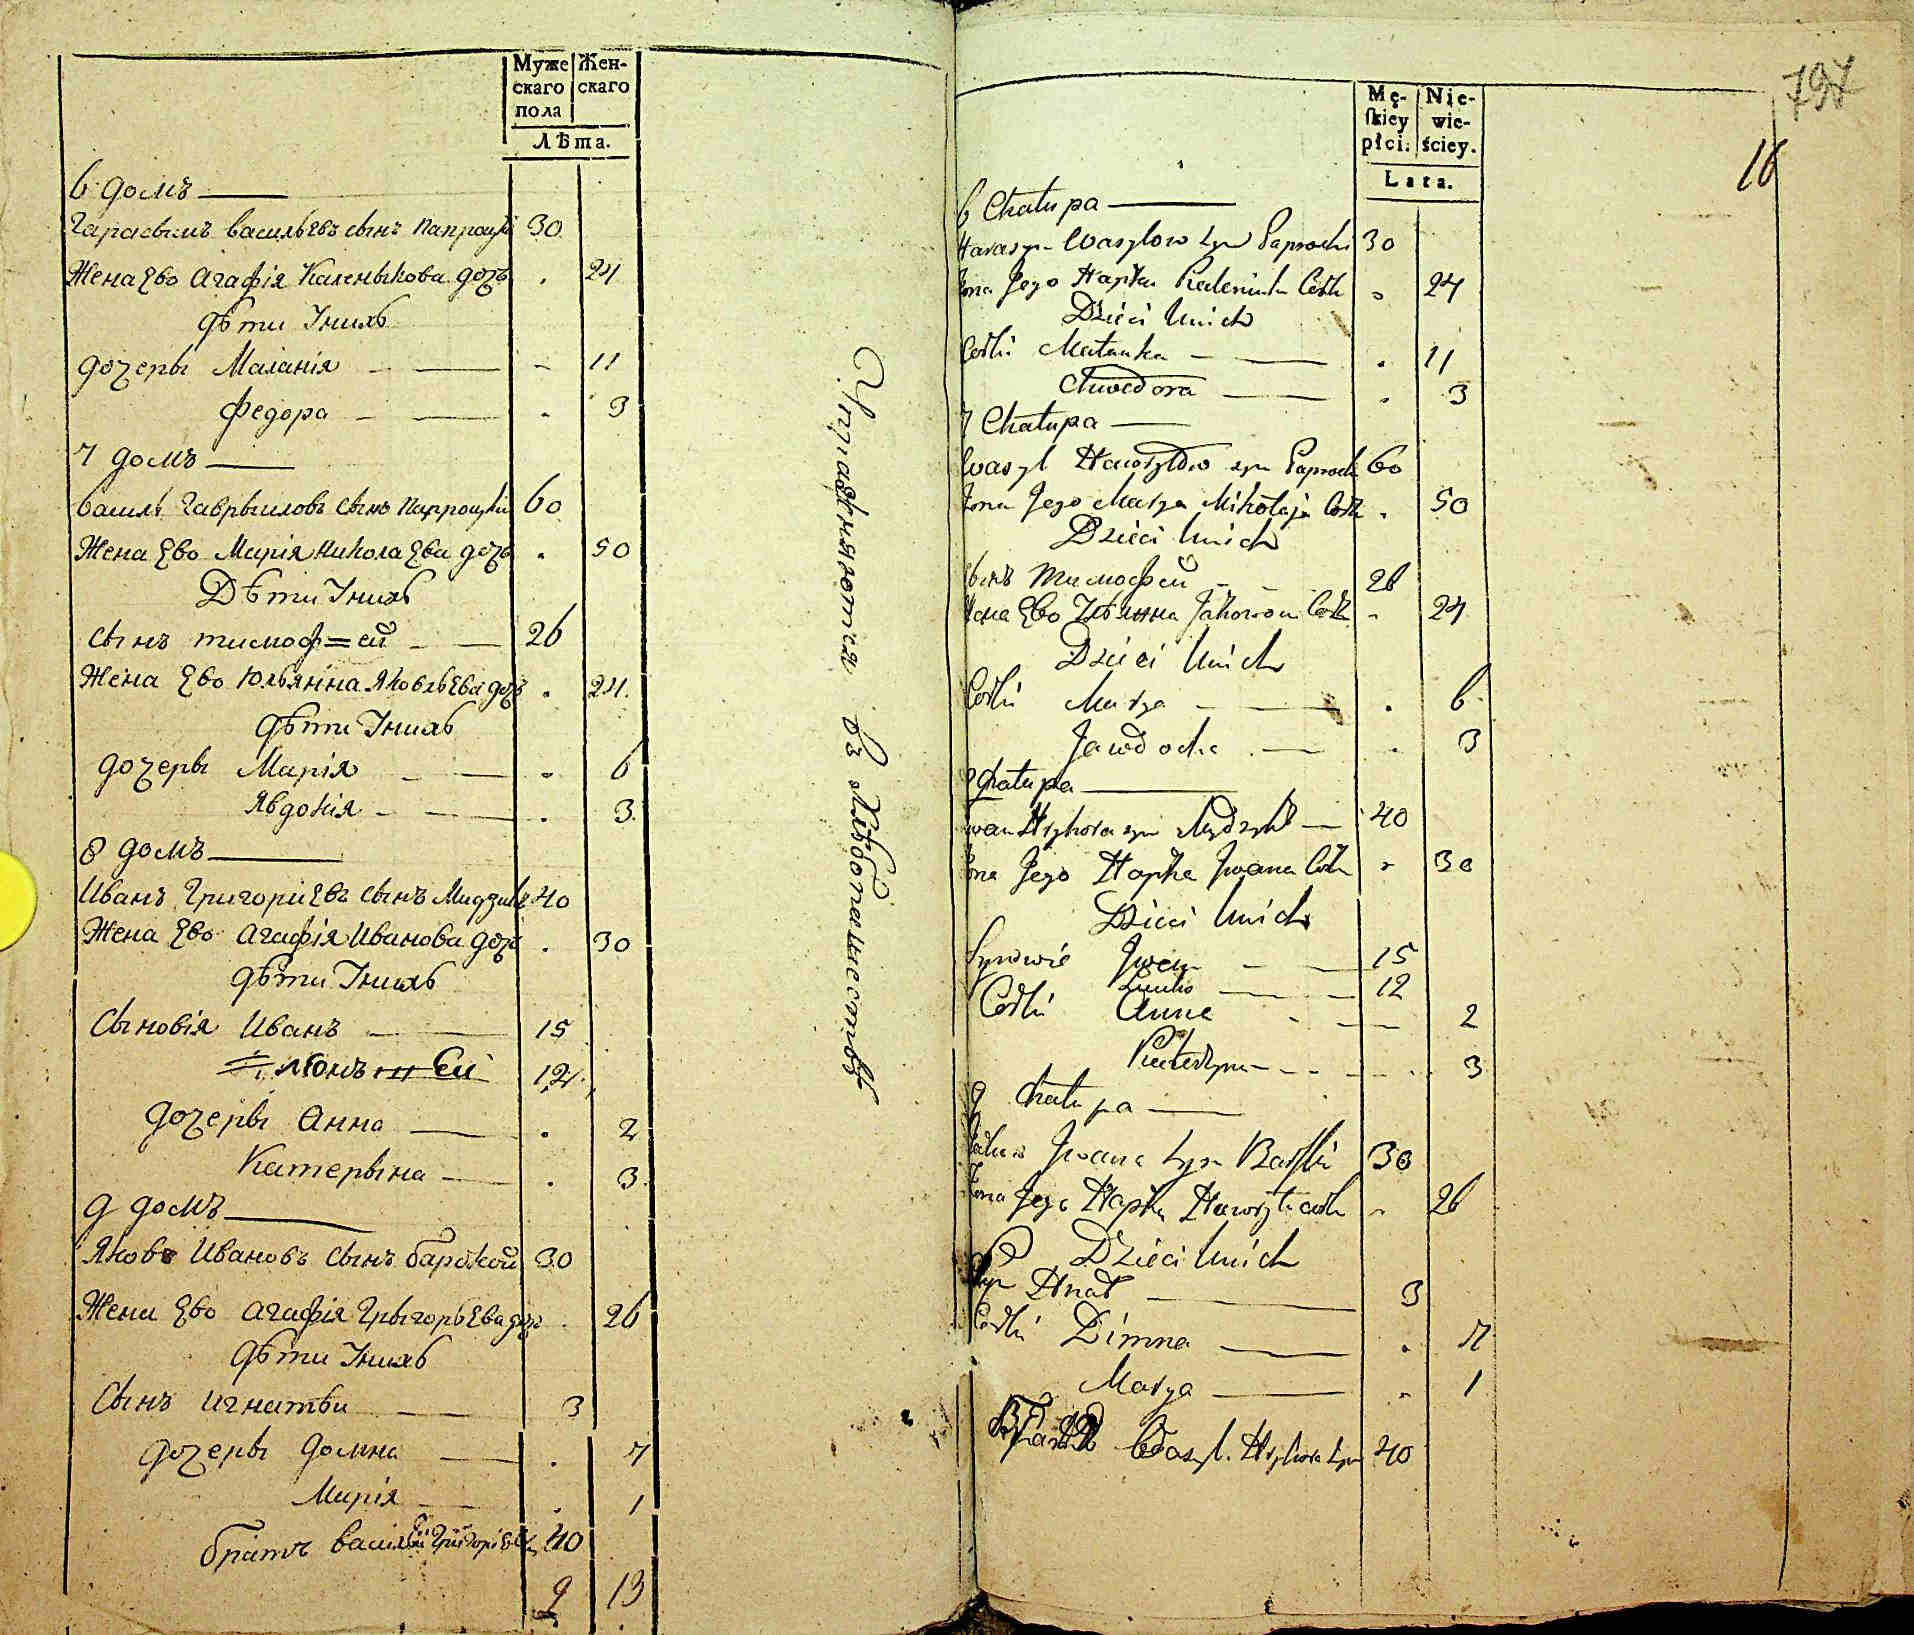 Муже Жен-
скаго скаго
пола
Лѣта.
6 домъ
Гарасымъ васильевъ сынъ Папроцкі 30
Жена Ево Агафія Каленыкова дочь 24
дѣти Унихъ
дочеры Маланія 11
Федора 3
7 домъ
василь Гаврыиловъ сынъ Папроцкій 60
Жена Ево Марія николаЕва дочь 50
Дѣти Унихъ
сынъ тимоф=ей 26
Жена Ево Юльянна ЯковльЕва дочь 24
дѣти Унихъ
дочеры Марія 6
Явдокія 3
8 домъ
Иванъ ГригориЕвъ сынъ 40
Жена Ево Агафія Иванова дочь 30
дѣти Унихъ
Сыновія Иванъ 15
12
дочеры Анна 2
Катерына 3
9 домъ
Яковъ Ивановъ сынъ барскои 30
Жена Ево Агафія ГрыгорьЕва дочь 26
дѣти Унихъ
Сынъ Игнатѣи 3
дочеры домна 7
Марія 1
братъ василіи 40
9 13
797
16
Mę- Nie-
ſkiey wie-
płci. ściey.
Lata.
6 Chałupa
Harasym Wasylow Syn Paprocki 30
Żona Jego Hapka Kalenika Corka 24
Dzieci Unich
Corki Małanka 11
Chwedora 3
7 Chałupa
Wasyl Hawryłow syn Paprocki 60
Żona Jego Marya Mikołaja Corka 50
Dzieci Unich
сынъ Тимофеи 26
Жена Ево Ульянна Jakowowa Corka 24
Dzieci Unich
Corki Marya 6
Jawdocha 3
8 Chałupa
Iwan Hryhora syn 40
Żona Jego Hapka Jwana Corka 30
Dzieci Unich
Synowie Jwan 15
12
Corki Anna 2
Kateryna 3
9 Chałupa
Jwana Syn Barſki 30
Żona Jego Hapka corka 26
Dzieci Unich
Syn Hnat 3
Corki Dimna 7
Marya 1
Wasyl Hryhora Syn 40